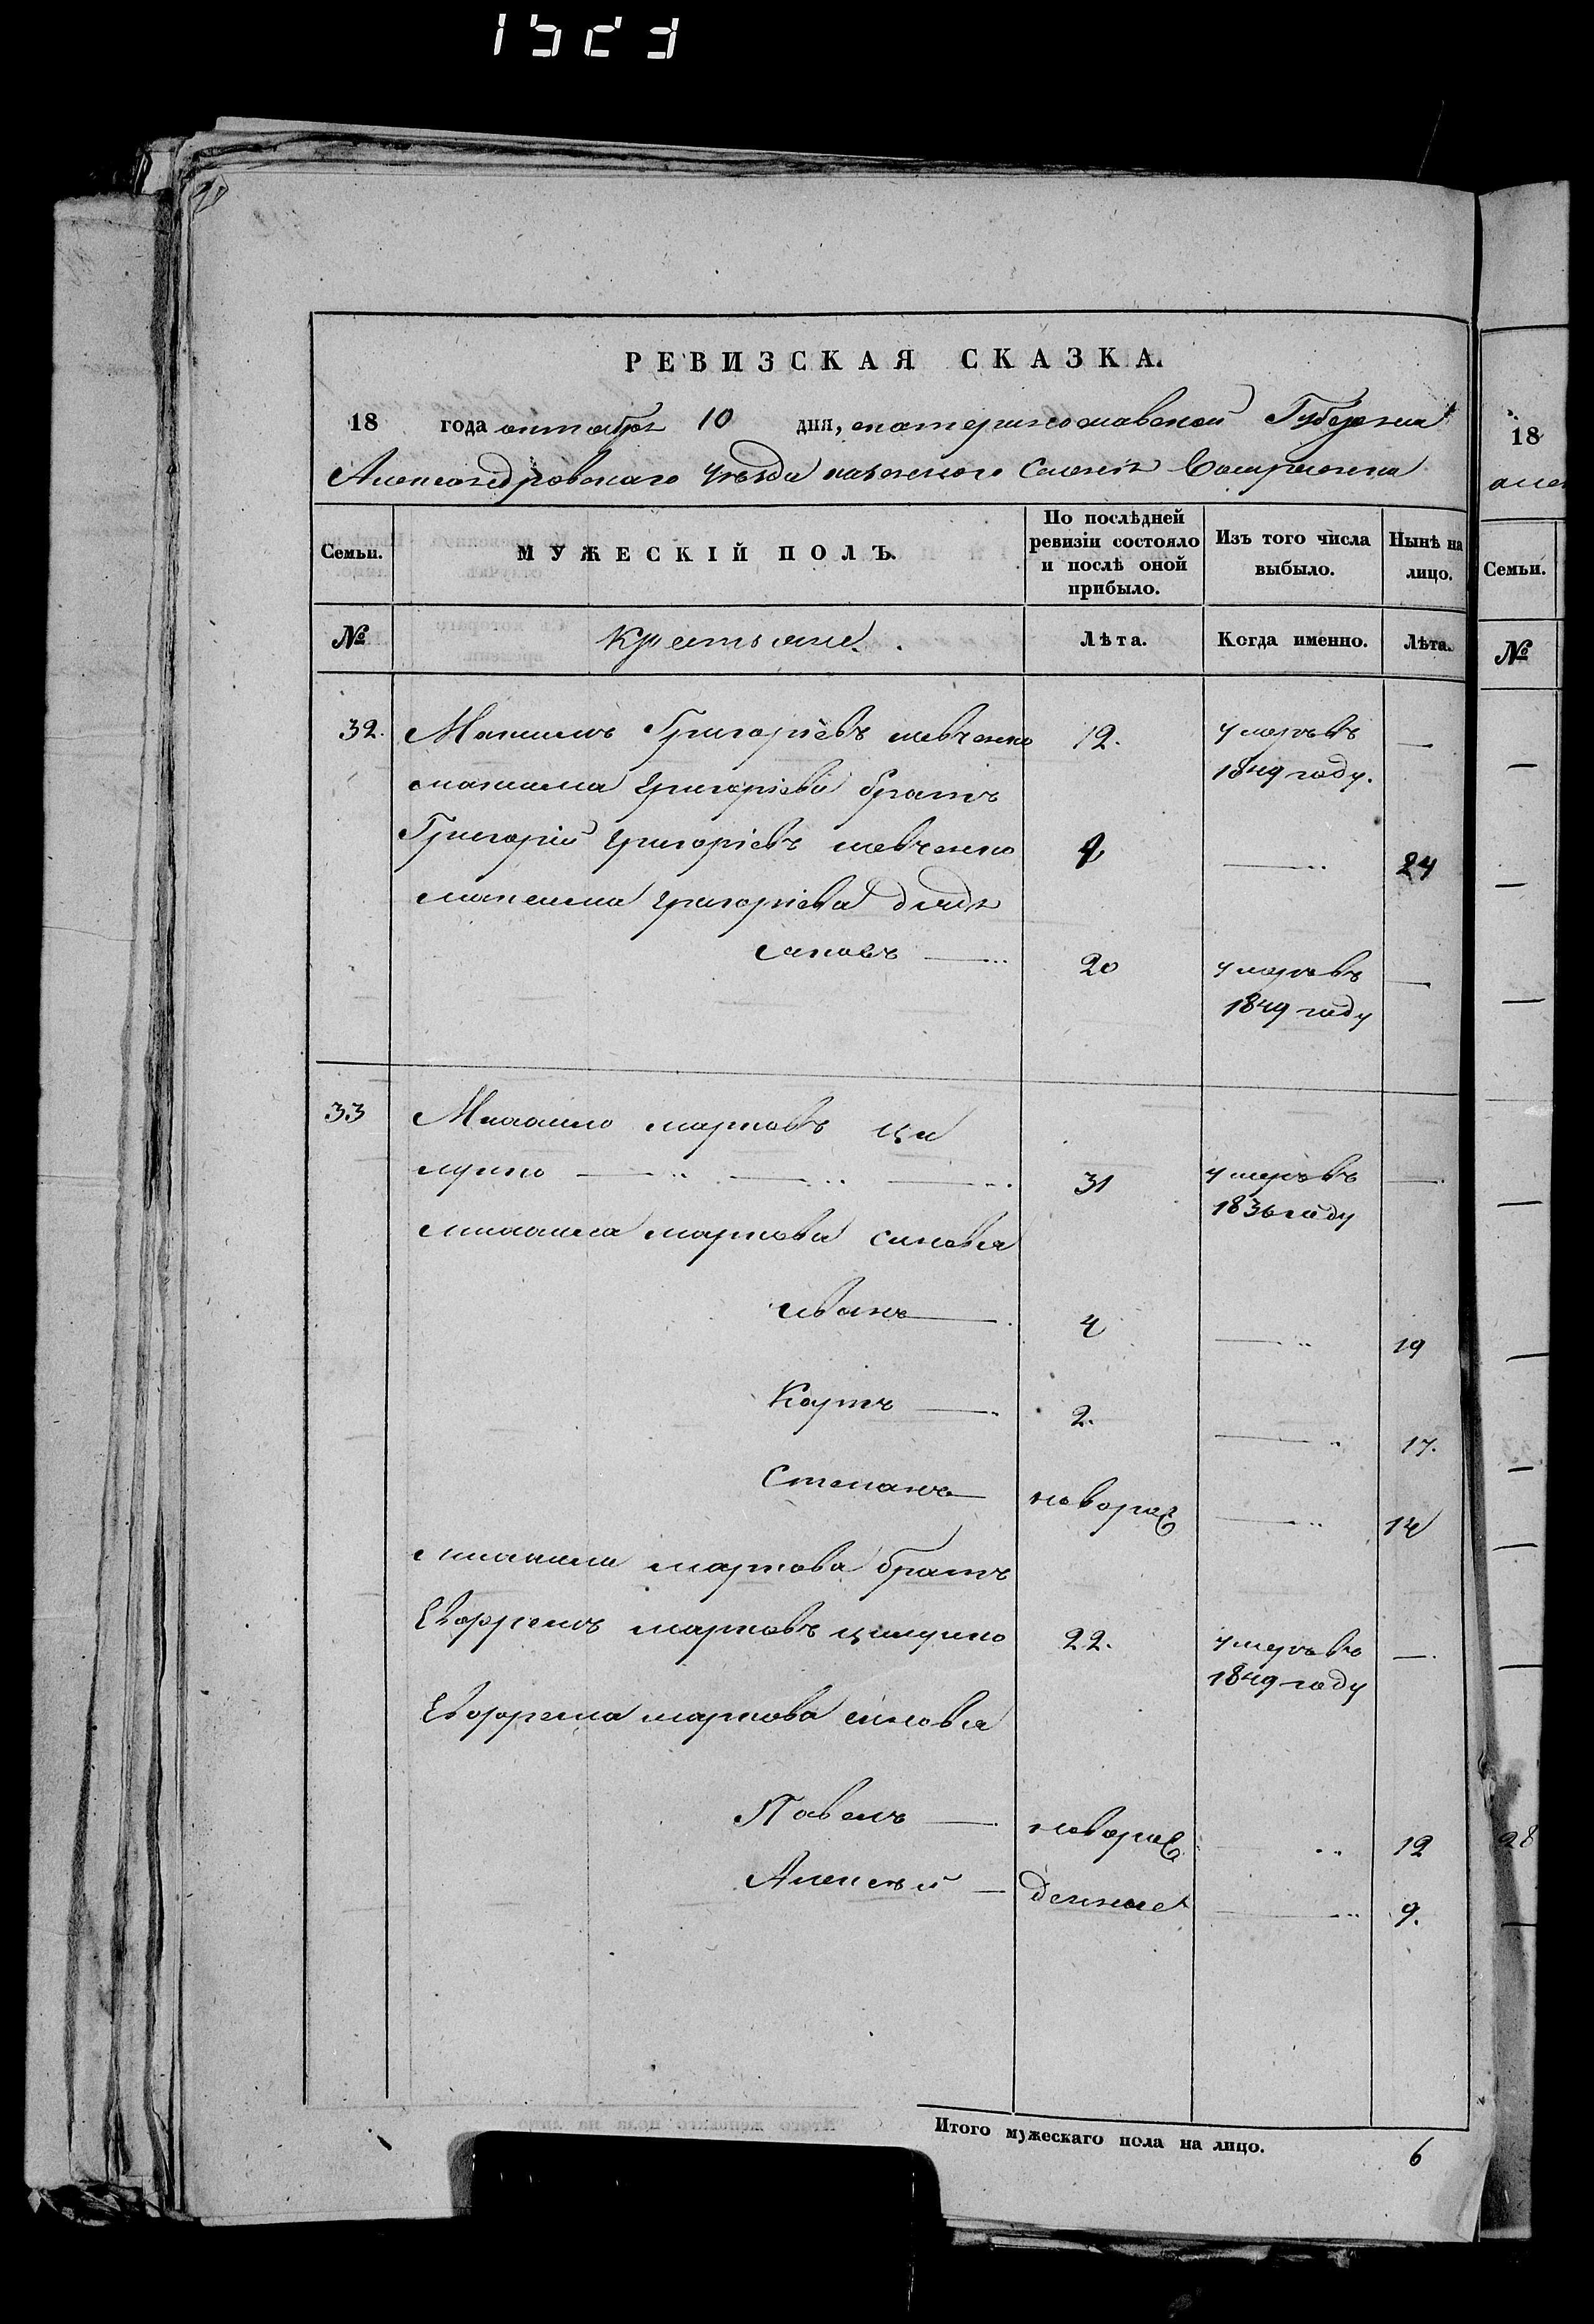 РЕВИЗСКАЯ СКАЗКА.
18 года октября 10 дня, екатеринославской Губернии
Александровскаго уѣзда казенного Селенія
Семьи.
МУЖЕСКІЙ ПОЛЪ.
По послѣдней ревизіи состояло и послѣ оной прибыло.
Изъ того числа выбыло.
Нынѣ на лицо.
№ Крестьяне. Лѣта. Когда именно. Лѣта.
32. Максимъ Григорьевъ шевченко 12. умеръ въ —
1849 году.
максима григорієва братъ
Григорій григорієвъ шевченко 9 — 24
максима григорієва дядя
20 умеръ въ —
1849 году
33 Михаило марковъ ци
лурико — — — 31 умеръ въ —
1836 году
михаила маркова синовья
иванъ — 4 — 19
Карпъ — 2. — 17.
Степанъ — новорож — 14
михаила маркова братъ
Евфремъ марковъ 22. умеръ въ —
1849 году
Евфрема маркова синовья
Павелъ — новорож — 12
Алексѣй — денные — 9.
Итого мужескаго пола на лицо. 6
18
Семьи.
№
28